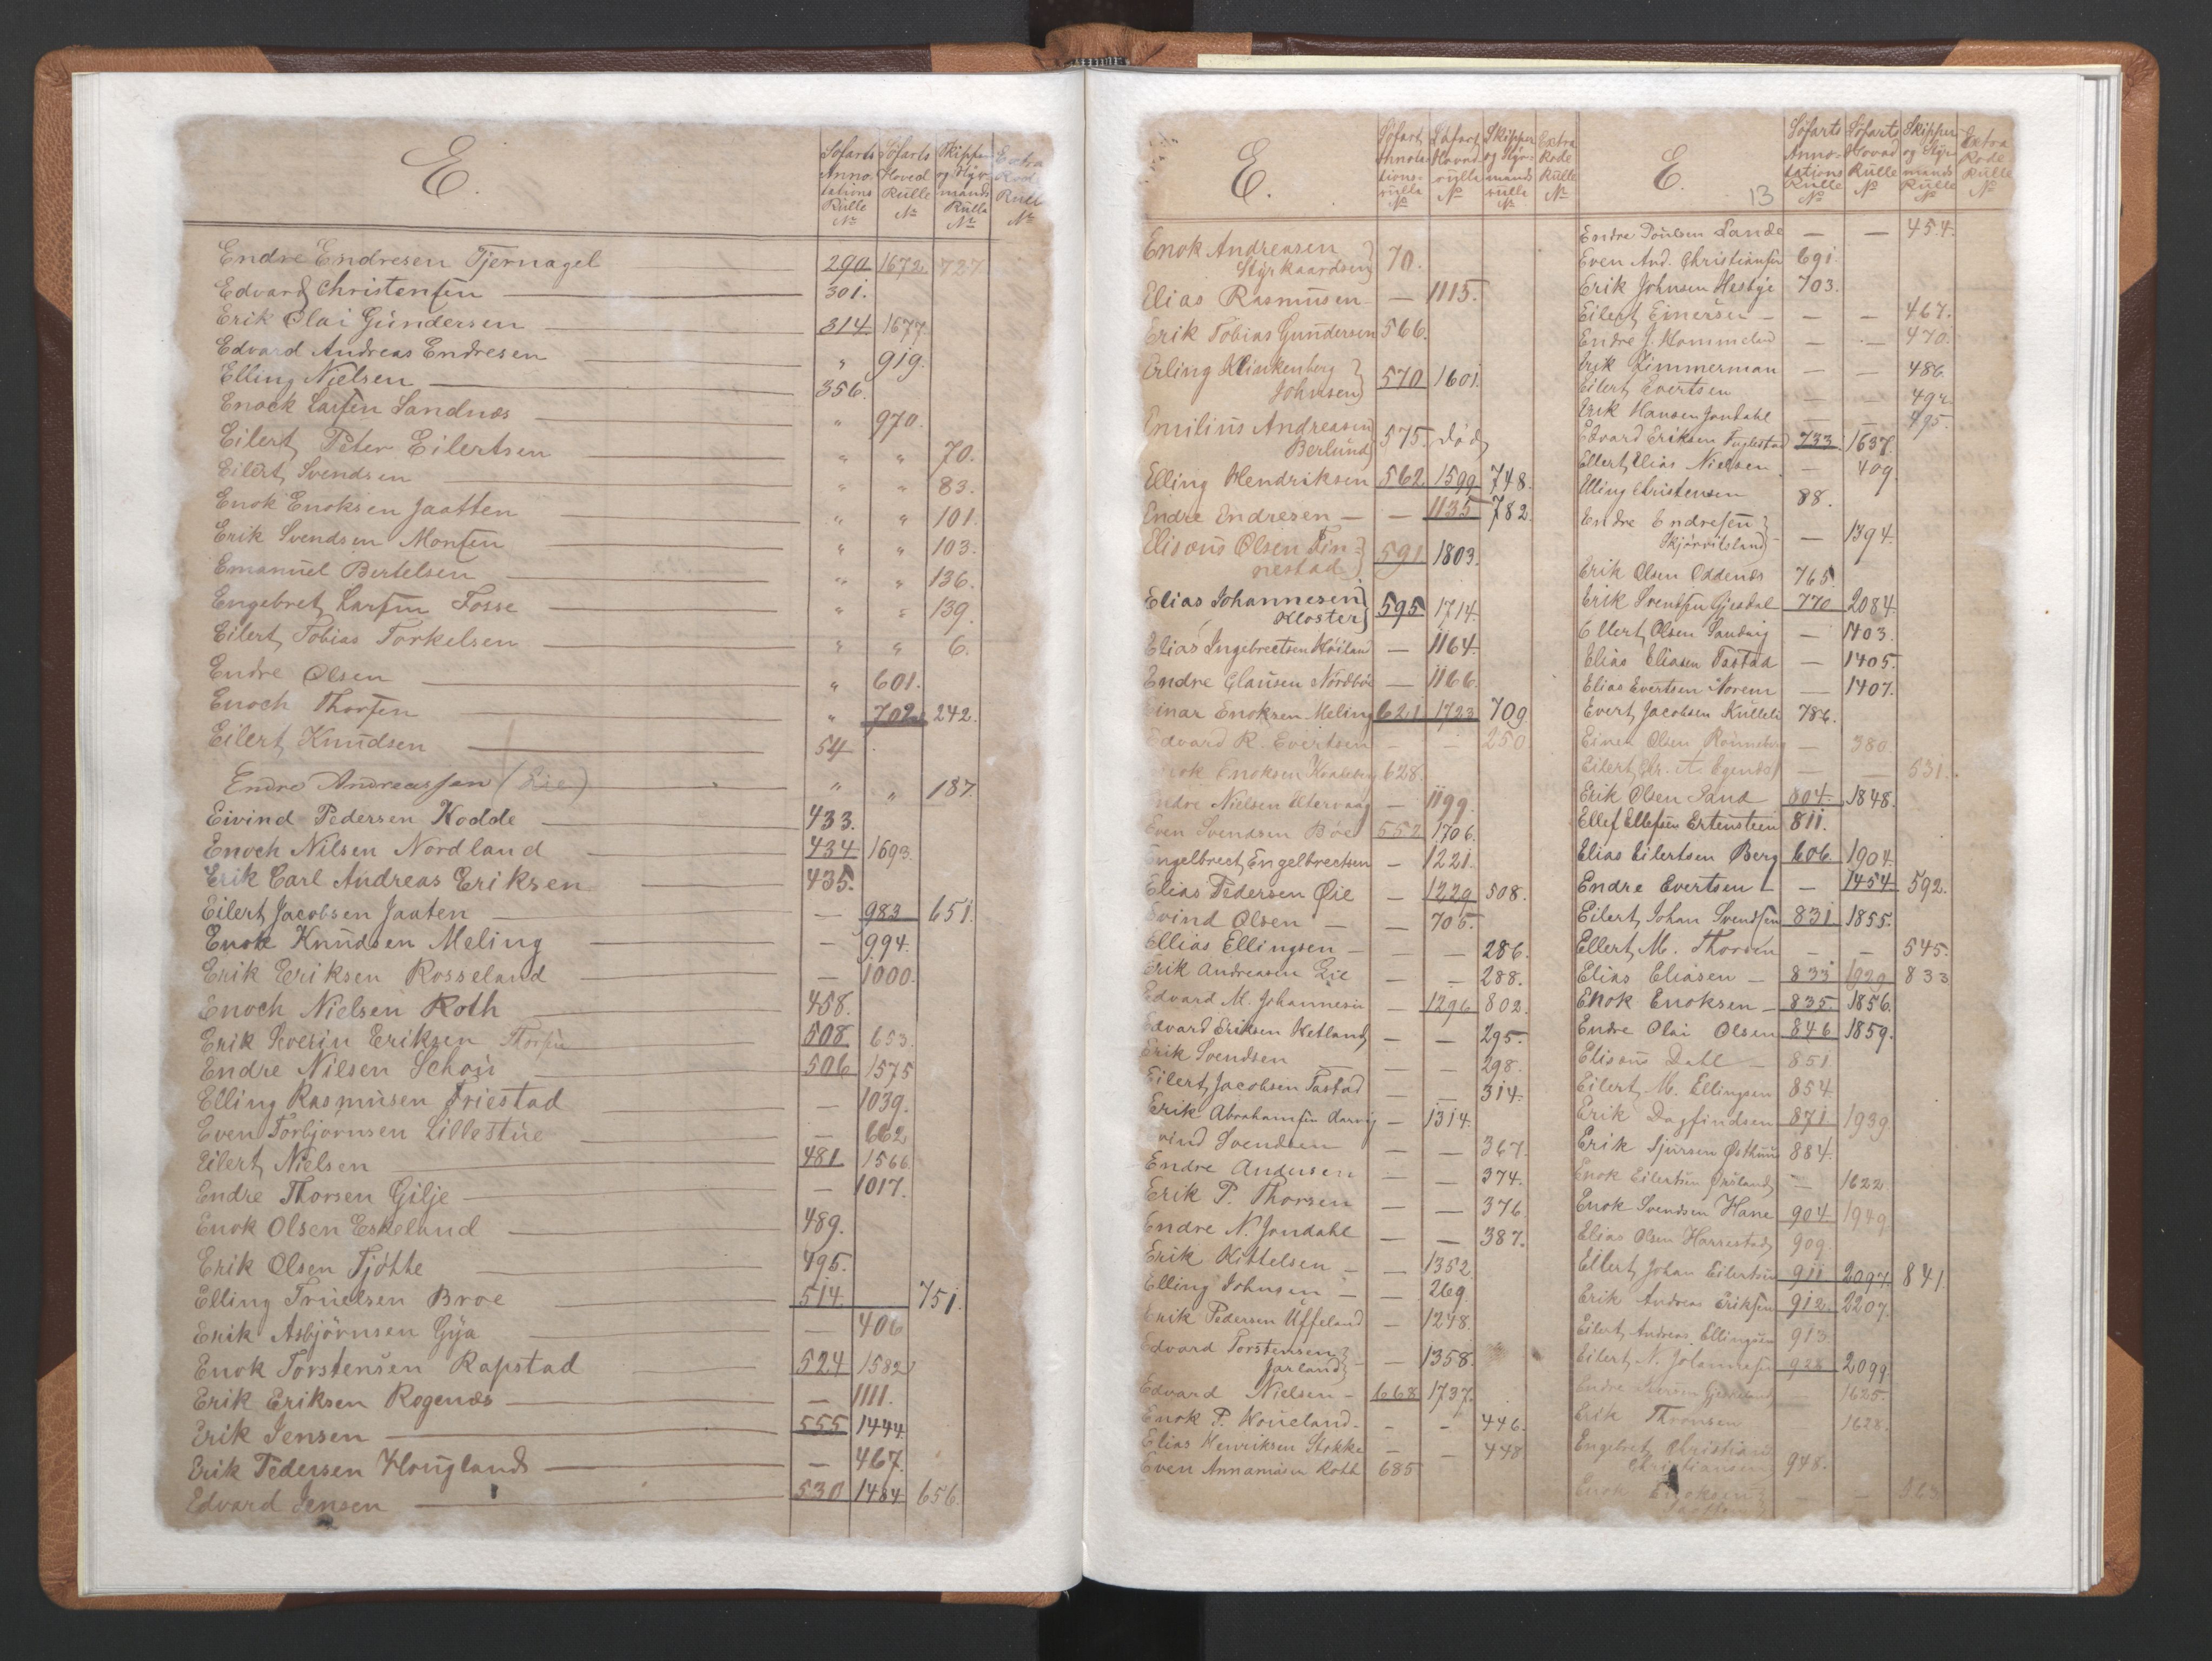 E.
Söfarts Anno- tations Rulle No
Söfarts Hoved Rulle No
Skipper og Styr- mands Rulle No
Extra Rode Rulle No
Endre Endresen Tjernagel 290 1672 727
Edvard Christensen 301.
Erik Olai Gundersen 314 1677
Edvard Andreas Endresen " 919.
Elling Nielsen 356.
Enock Larsen Sandnæs " 970.
Eilert Peter Eilertsen " " 70.
Eilert Svendsen " " 83.
Enok Enoksen Jaatten " " 101.
Erik Svendsen Monsen " " 103.
Emanuel Bertelsen " " 136.
Engebret Larsen Fosse " " 139.
Eilert Tobias Torkelsen " " 6.
Endre Olsen " 601.
Enoch Thorsen " 702 242.
Eilert Knudsen 54
Endre Andreassen (Lie) " " 187.
Eivind Pedersen Kodde 433.
Enoch Nilsen Nordland 434 1693.
Erik Carl Andreas Eriksen 435.
Eilert Jacobsen Jaaten — 983 651.
Enok Knudsen Meling — 994.
Erik Eriksen Rosseland — 1000.
Enoch Nielsen Roth 458.
Erik Severin Eriksen Thorsen 508 653.
Endre Nilsen Schou 506 1575
Elling Rasmusen Friestad — 1039.
Even Torbjornsen Lillestue — 662
Eilert Nielsen 481 1566.
Endre Thorsen Gilje — 1017.
Enok Olsen Eskeland 489.
Erik Olsen Tjøtte 495.
Elling Truelsen Broe 514 751.
Erik Asbjörnsen Gya — 406
Enok Torstensen Rapstad 524 1582
Erik Eriksen Rogenæs — 1111.
Erik Jensen 555 1444
Erik Pedersen Houglands — 467.
Edvard Jensen 530 1484 656.
E.
Söfart Annota- tions- rulle No
Söfart Hoved- rulle No
Skipper og Styr- mands rulle No
Extra Rode Rulle No
Enok Andreasen
Styrkaardsen 70.
Elias Rasmusen — 1115.
Erik Tobias Gundersen 566.
Erling Klinkenberg
Johnsen 570 1601.
Emilius Andreasen
Berlund 575. död
Elling Hendriksen 562 1599 748.
Endre Endresen — — 1135 782.
Elisæus Olsen Fin-
nestad 591 1803.
Elias Johannesen
Kloster 595 1714.
Elias Ingebretsen Høiland — 1164.
Endre Clausen Nordbøe — 1166.
Einar Enoksen Meling 621 1723 709.
Edvard R. Evertsen — — 250
Enoksen 628.
Endre Nielsen Utervaag — 1199.
Even Svendsen Bøe 552 1706.
Engelbrect Engelbrectsen — 1221.
Elias Pedersen Øie — 1229 508.
Eivind Olsen — — 705.
Ellias Ellingsen — — — 286.
Erik Andreasen Lie — — 288.
Edvard M. Johannesen — 1296 802.
Edvard Eriksen Ketland — — 295.
Erik Svendsen — — 298.
Eilert Jacobsen Tastad — — 314.
Erik Abrahamsen Aarvig — 1314.
Evind Svendsen — — 367.
Endre Andersen — — 374.
Erik P. Thorsen — — 376.
Endre N. Jondahl — — 387.
Erik Kittelsen — — 1352
Elling Johnsen — — 269.
Erik Pedersen Uffeland — 1248.
Edvard Torstensen
Jarland — 1358.
Edvard Nielsen — 668 1737.
Enok P. Houeland. — — 446.
Elias Henriksen Stokke — — 448
Even Annaniasen Roth 685
E.
13
Söfarts Anno- tations Rulle No
Söfarts Hoved Rulle No
Skipper og Styr- mands Rulle No
Extra Rode Rulle No
Endre Poulsen Lande — — 454.
Even And. Christiansen 691.
Erik Johnsen Hesbye 703.
Eilert Einersen — — — 467.
Endre J. — — 470.
Erik Zimmerman — — 486
Eilert Evertsen — — 492.
Erik Hansen Jondahl — — 495.
Edvard Eriksen Fuglestad 733 1637.
Ellert Elias Nielsen — 409.
Elling Christensen 88.
Endre Endresen
— 1394.
Erik Olsen Oddenes 765.
Erik Svendsen Gjesdal 770 2084.
Ellert Olsen Sandvig — 1403.
Elias Eliasen Tastad — 1405.
Elias Evertsen Norem — 1407.
Evert Jacobsen 786.
Einer Olsen Rönneberg — 380.
Eilert Chr. A. Egenæs — — 531.
Erik Olsen Sand 804. 1848.
Ellef Ellefsen Ertensteen 811.
Elias Eilertsen Berg 606 1904.
Endre Evertsen — — 1454 592.
Eilert Johan Svendsen 831 1855.
Ellert M. Thorsen — — 545.
Elias Eliasen — 833 1929 833
Enok Enoksen — 835. 1856.
Endre Olai Olsen 846 1859.
Elisæus Dahl — 851
Eilert M. Ellingsen 854.
Erik Dagfindsen 871 1939
Erik Sjursen Østhuus 884.
Enok Eilertsen — 1622
Enok Svendsen Hane 904 1949
Elias Olsen Harrestad 909.
Ellert Johan Eilertsen 911 2097. 841.
Erik Andreas Eriksen 912. 2207.
Eilert Andreas Ellingsen 913.
Eilert N. Johannesen 928 2099.
Endre — 1625.
Erik Thronsen 1628.
Engebret Christian
Christiansen 948.
Enok Enoksen — — 563